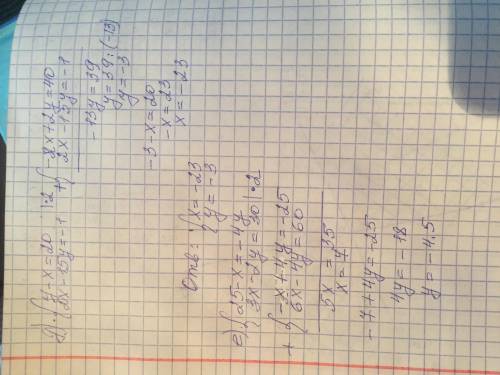 д) { y-x=20 |·2
2x-15y=-1
+ { -2x+2y=40
2x-15y=-1
-13y=39
y=39:(-13)
y=-3
-3-x=20
-x=23
x=-23
Отв: { x=-23
y=-3
е) { 25-x=-4y
3x-2y=30 |·2
+ { -x+4y=-25
6x-4y=60
5x=35
x=7
-7+4y=-25
4y=-18
y=-4,5